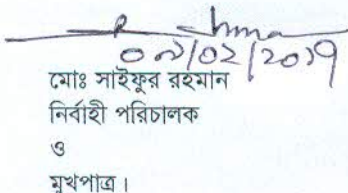 ০৯/০২/২০১৭
মোঃ সাইফুর রহমান
নির্বাহী পরিচালক
ও
মুখপাত্র।